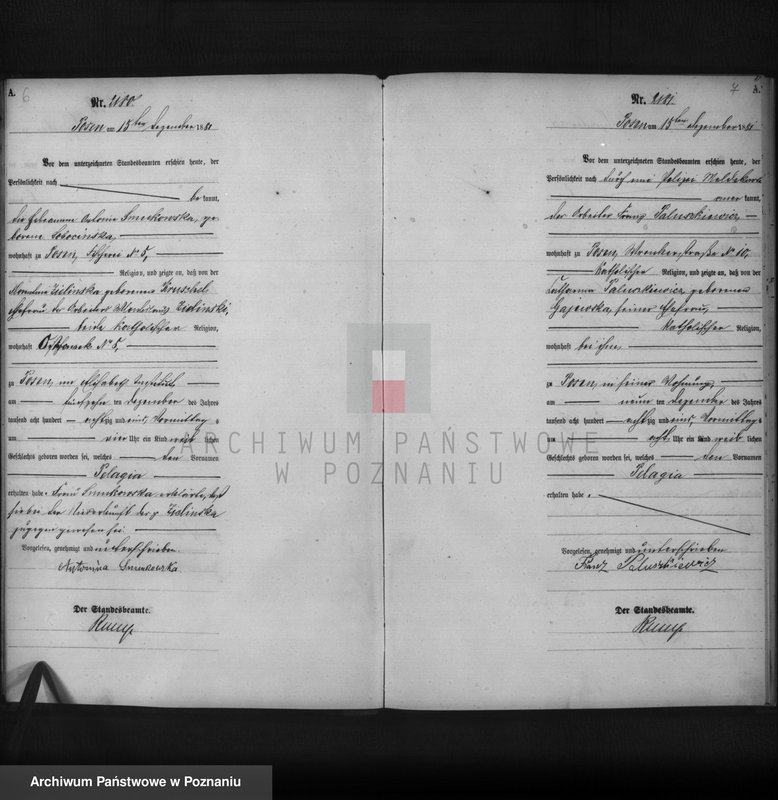 A. 6
Nr. 2180.
Posen am 15ten Dezember 1881
Vor dem unterzeichneten Standesbeamten erschien heute, der
Persönlichkeit nach
be kannt,
die Hebamme Antonie Smukowska, ge
borene Sobocinska,
wohnhaft zu Posen, No 5,
Religion, und zeigte an, daß von der
Zielinska geborene
Ehefrau des Arbeiters Zielinski,
beide katholischer Religion,
wohnhaft Ostrowek No 5,
zu Posen, im Elisabeth Institut
am fünfzehn ten Dezember des Jahres
tausend acht hundert achtzig und eins, Vormittag s
um vier Uhr ein Kind weib lichen
Geschlechts geboren worden sei, welches den Vornamen
Pelagia
erhalten habe. Frau Smukowska erklärte, daß
sie bei der Niederkunft der p. Zielinska
zugegen gewesen sei.
Vorgelesen, genehmigt und unterschrieben.
Antonina Smukowska
Der Standesbeamte.
Rump
7 A.
Nr. 2181.
Posen am 15ten Dezember 1881
Vor dem unterzeichneten Standesbeamten erschien heute, der
Persönlichkeit nach durch eine Polizei Meldekarte
aner kannt,
der Arbeiter Franz Paluszkiewicz,
wohnhaft zu Posen, Wronkerstraße No 10,
katholischer Religion, und zeigte an, daß von der
Catharina Paluszkiewicz geborenen
Gajewska, seiner Ehefrau,
katholischer Religion,
wohnhaft bei ihm,
zu Posen, in seiner Wohnung,
am neun ten Dezember des Jahres
tausend acht hundert achtzig und eins, Vormittag s
um acht Uhr ein Kind weib lichen
Geschlechts geboren worden sei, welches den Vornamen
Pelagia
erhalten habe.
Vorgelesen, genehmigt und unterschrieben
Franz Paluszkiewicz
Der Standesbeamte.
Rump
ARCHIWUM PAŃSTWOWE
W POZNANIU
Archiwum Państwowe w Poznaniu